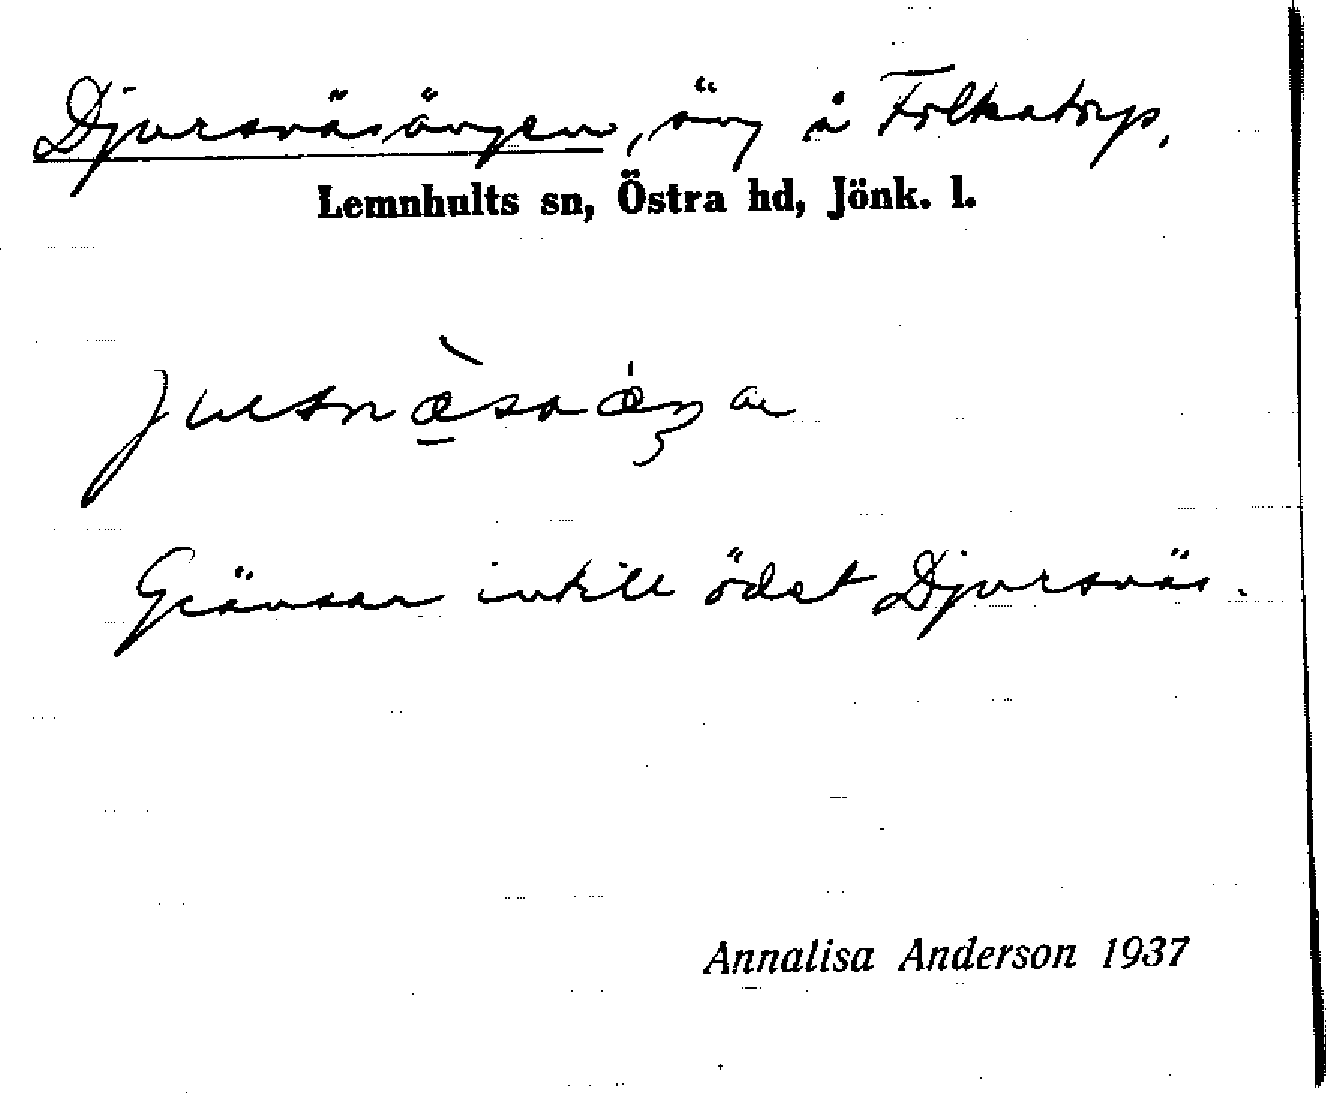 Djursnäsängen, äng å Folkatorp.
Lemnhults sn, Östra hd, Jönk. l.
Gränsar intill ödet Djursnäs.
Annalisa Anderson 1937